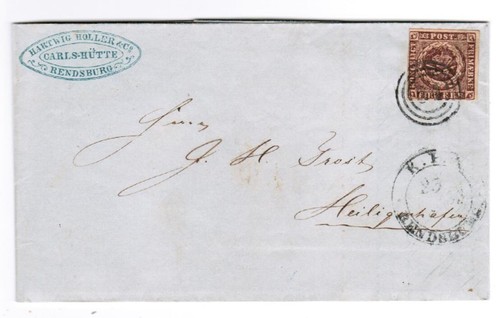 HARTWIG HOLLER & Co
CARLS-HÜTTE
RENDSBURG
POST
FRIMÆRKE
Herrn
J. H. Trost
Heiligenhafen
K. P.
RENDSBURG